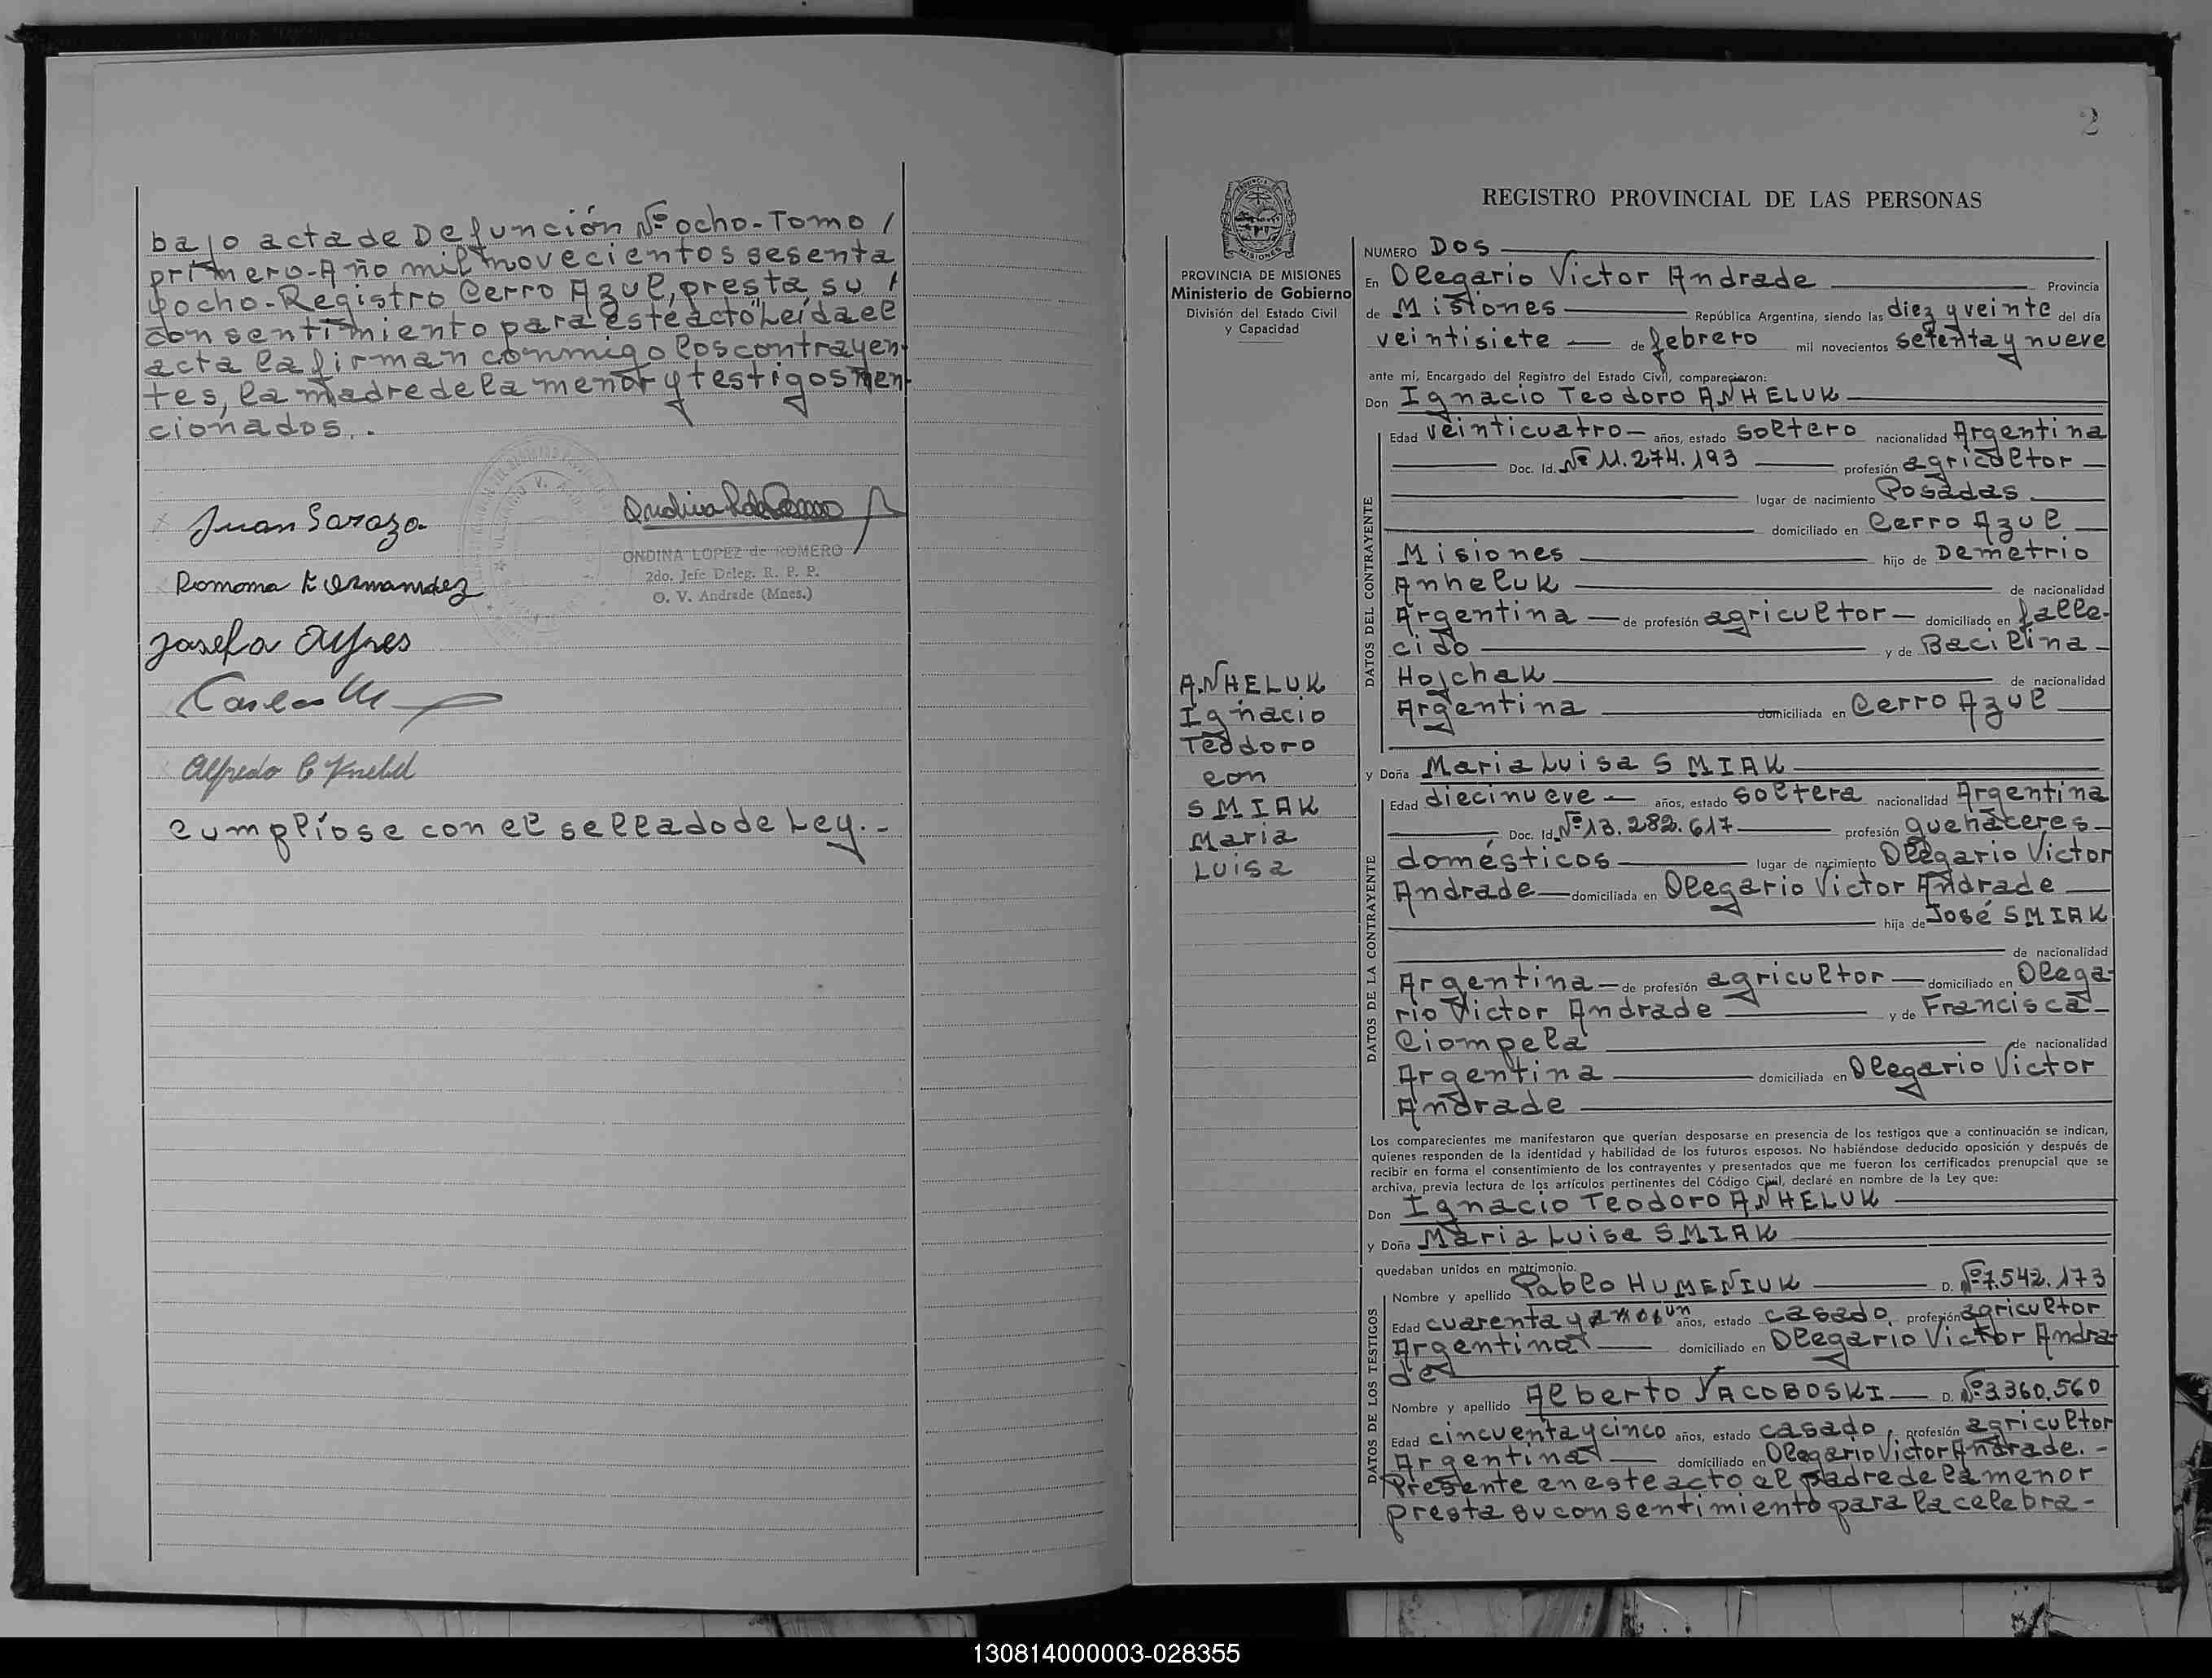 bajo acta de Defunción Nº ocho-Tomo /
primero-Año mil novecientos sesenta
y ocho-Registro Cerro Azul, presta su /
consentimiento para este acto" Leída el
acta la firman conmigo los contrayen-
tes, la madre de la menor y testigos men-
cionados..-
Juan Sarazo
ONDINA LOPEZ de ROMERO
2do. Jefe Deleg. R. P. P.
O. V. Andrade (Mnes.)
Ramona Fernandez
Josefa
Carlos
Alfredo C Knebel
Cumplíose con el sellado de Ley.-
2
REGISTRO PROVINCIAL DE LAS PERSONAS
PROVINCIA DE MISIONES
Ministerio de Gobierno
División del Estado Civil
y Capacidad
ANHELUK
Ignacio
Teodoro
con
SMIAK
Maria
Luisa
NUMERO DOS
En Olegario Victor Andrade Provincia
de Misiones República Argentina, siendo las diez y veinte del día
veintisiete de febrero mil novecientos setenta y nueve
ante mí, Encargado del Registro del Estado Civil, comparecieron:
Don Ignacio Teodoro ANHELUK
DATOS DEL CONTRAYENTE
Edad veinticuatro años, estado soltero nacionalidad Argentina
Doc. Id. Nº 11.274.193 profesión agricultor
lugar de nacimiento Posadas
domiciliado en Cerro Azul
Misiones hijo de Demetrio
Anheluk de nacionalidad
Argentina de profesión agricultor domiciliado en falle-
cido y de Bacilina
Hojchak de nacionalidad
Argentina domiciliada en Cerro Azul
y Doña Maria Luisa SMIAK
DATOS DE LA CONTRAYENTE
Edad diecinueve años, estado soltera nacionalidad Argentina
Doc. Id. Nº 13.282.617 profesión quehaceres
domésticos lugar de nacimiento Olegario Victor
Andrade domiciliada en Olegario Victor Andrade
hija de José SMIAK
de nacionalidad
Argentina de profesión agricultor domiciliado en Olega-
rio Victor Andrade y de Francisca
Ciompela de nacionalidad
Argentina domiciliada en Olegario Victor
Andrade
Los comparecientes me manifestaron que querían desposarse en presencia de los testigos que a continuación se indican,
quienes responden de la identidad y habilidad de los futuros esposos. No habiéndose deducido oposición y después de
recibir en forma el consentimiento de los contrayentes y presentados que me fueron los certificados prenupcial que se
archiva, previa lectura de los artículos pertinentes del Código Civil, declaré en nombre de la Ley que:
Don Ignacio Teodoro ANHELUK
y Doña Maria Luisa SMIAK
quedaban unidos en matrimonio.
DATOS DE LOS TESTIGOS
Nombre y apellido Pablo HUMENIUK D. Nº 7.542.173
Edad cuarenta y un años, estado casado, profesión agricultor
Argentina domiciliado en Olegario Victor Andra-
de
Nombre y apellido Alberto YACOBOSKI D. Nº 3.360.560
Edad cincuenta y cinco años, estado casado, profesión agricultor
Argentina domiciliado en Olegario Victor Andrade.-
Presente en este acto el padre de la menor
presta su consentimiento para la celebra-
130814000003-028355